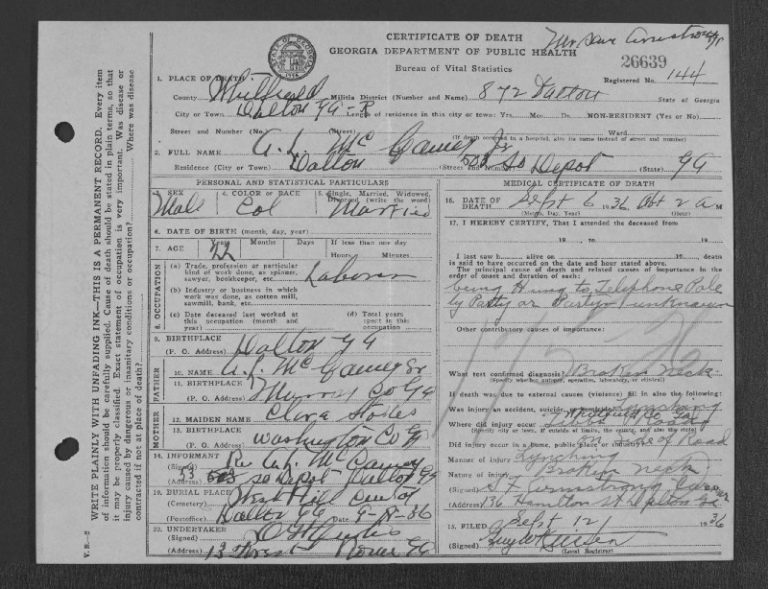 CERTIFICATE OF DEATH
GEORGIA DEPARTMENT OF PUBLIC HEALTH
Bureau of Vital Statistics
26639
Registered No. 144
1. PLACE OF DEATH
County Whitfield Militia District (Number and Name) 872 Dalton State of Georgia
City or Town Dalton GA-R Length of residence in this city or town: Yrs. Mos. Da. NON-RESIDENT (Yes or No)
Street and Number (No. (Street) Ward
(If death occurred in a hospital, give its name instead of street and number)
2. FULL NAME A. L. McCamy Jr
Residence (City or Town) Dalton (Street and Number) 503 So Depot (State) GA
PERSONAL AND STATISTICAL PARTICULARS
3. SEX Male
4. COLOR or RACE Col
5. Single, Married, Widowed, Divorced (write the word) Married
6. DATE OF BIRTH (month, day, year)
7. AGE Years Months Days If less than one day
Hours Minutes
8. OCCUPATION
(a) Trade, profession or particular kind of work done, as spinner, sawyer, bookkeeper, etc. Laborer
(b) Industry or business in which work was done, as cotton mill, sawmill, bank, etc.
(c) Date deceased last worked at this occupation (month and year)
(d) Total years spent in this occupation
9. BIRTHPLACE
(P. O. Address) Dalton GA
FATHER
10. NAME A. L. McCamy Sr
11. BIRTHPLACE
(P. O. Address) Murray Co GA
MOTHER
12. MAIDEN NAME Clora
13. BIRTHPLACE
(P. O. Address) Washington Co GA
14. INFORMANT
(Signed) Rev A. L. McCamy
(Address) 503 So Depot Dalton GA
19. BURIAL PLACE
(Cemetery) West Hill
(Postoffice) Dalton GA Date 9- -36
20. UNDERTAKER
(Signed)
(Address) Rome GA
MEDICAL CERTIFICATE OF DEATH
16. DATE OF DEATH Sept 6 1936 Abt 2 A M
(Month, Day, Year) (Hour)
17. I HEREBY CERTIFY, That I attended the deceased from
19 to 19
I last saw h alive on 19 , death
is said to have occurred on the date and hour stated above.
The principal cause of death and related causes of importance in the
order of onset and duration of each:
being Hung to Telephone Pole
by Party or Partys unknown
Other contributory causes of importance:
What test confirmed diagnosis? Broken Neck
(Specify whether autopsy, operation, laboratory, or clinical)
If death was due to external causes (violence) fill in also the following:
Was injury an accident, suicide, Lynching
Where did injury occur Whitfield Co GA
Did injury occur in a home, public place or industry? on side of Road
Manner of injury Lynching
Nature of injury Broken neck
(Signed) Armstrong Coroner
(Address) 136 Hamilton St Dalton Ga
18. FILED Sept 12 1936
(Signed) Guy W
(Local Registrar)
WRITE PLAINLY WITH UNFADING INK—THIS IS A PERMANENT RECORD. Every item
of information should be carefully supplied. Cause of death should be stated in plain terms, so that
it may be properly classified. Exact statement of occupation is very important. Was disease or
injury caused by dangerous or insanitary conditions or occupation? Where was disease
contracted if not at place of death?